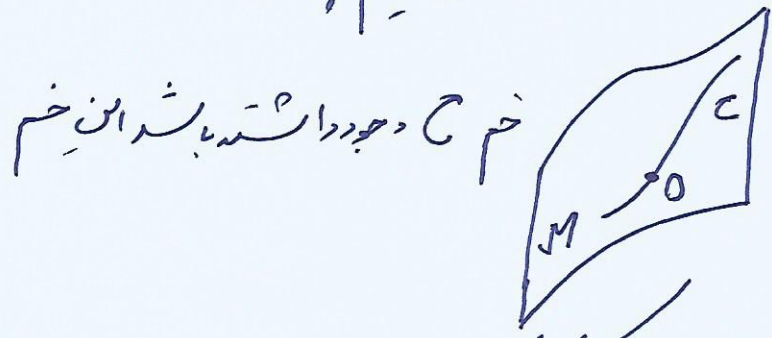 خم C وجود داشته باشد این خم
C
O
M